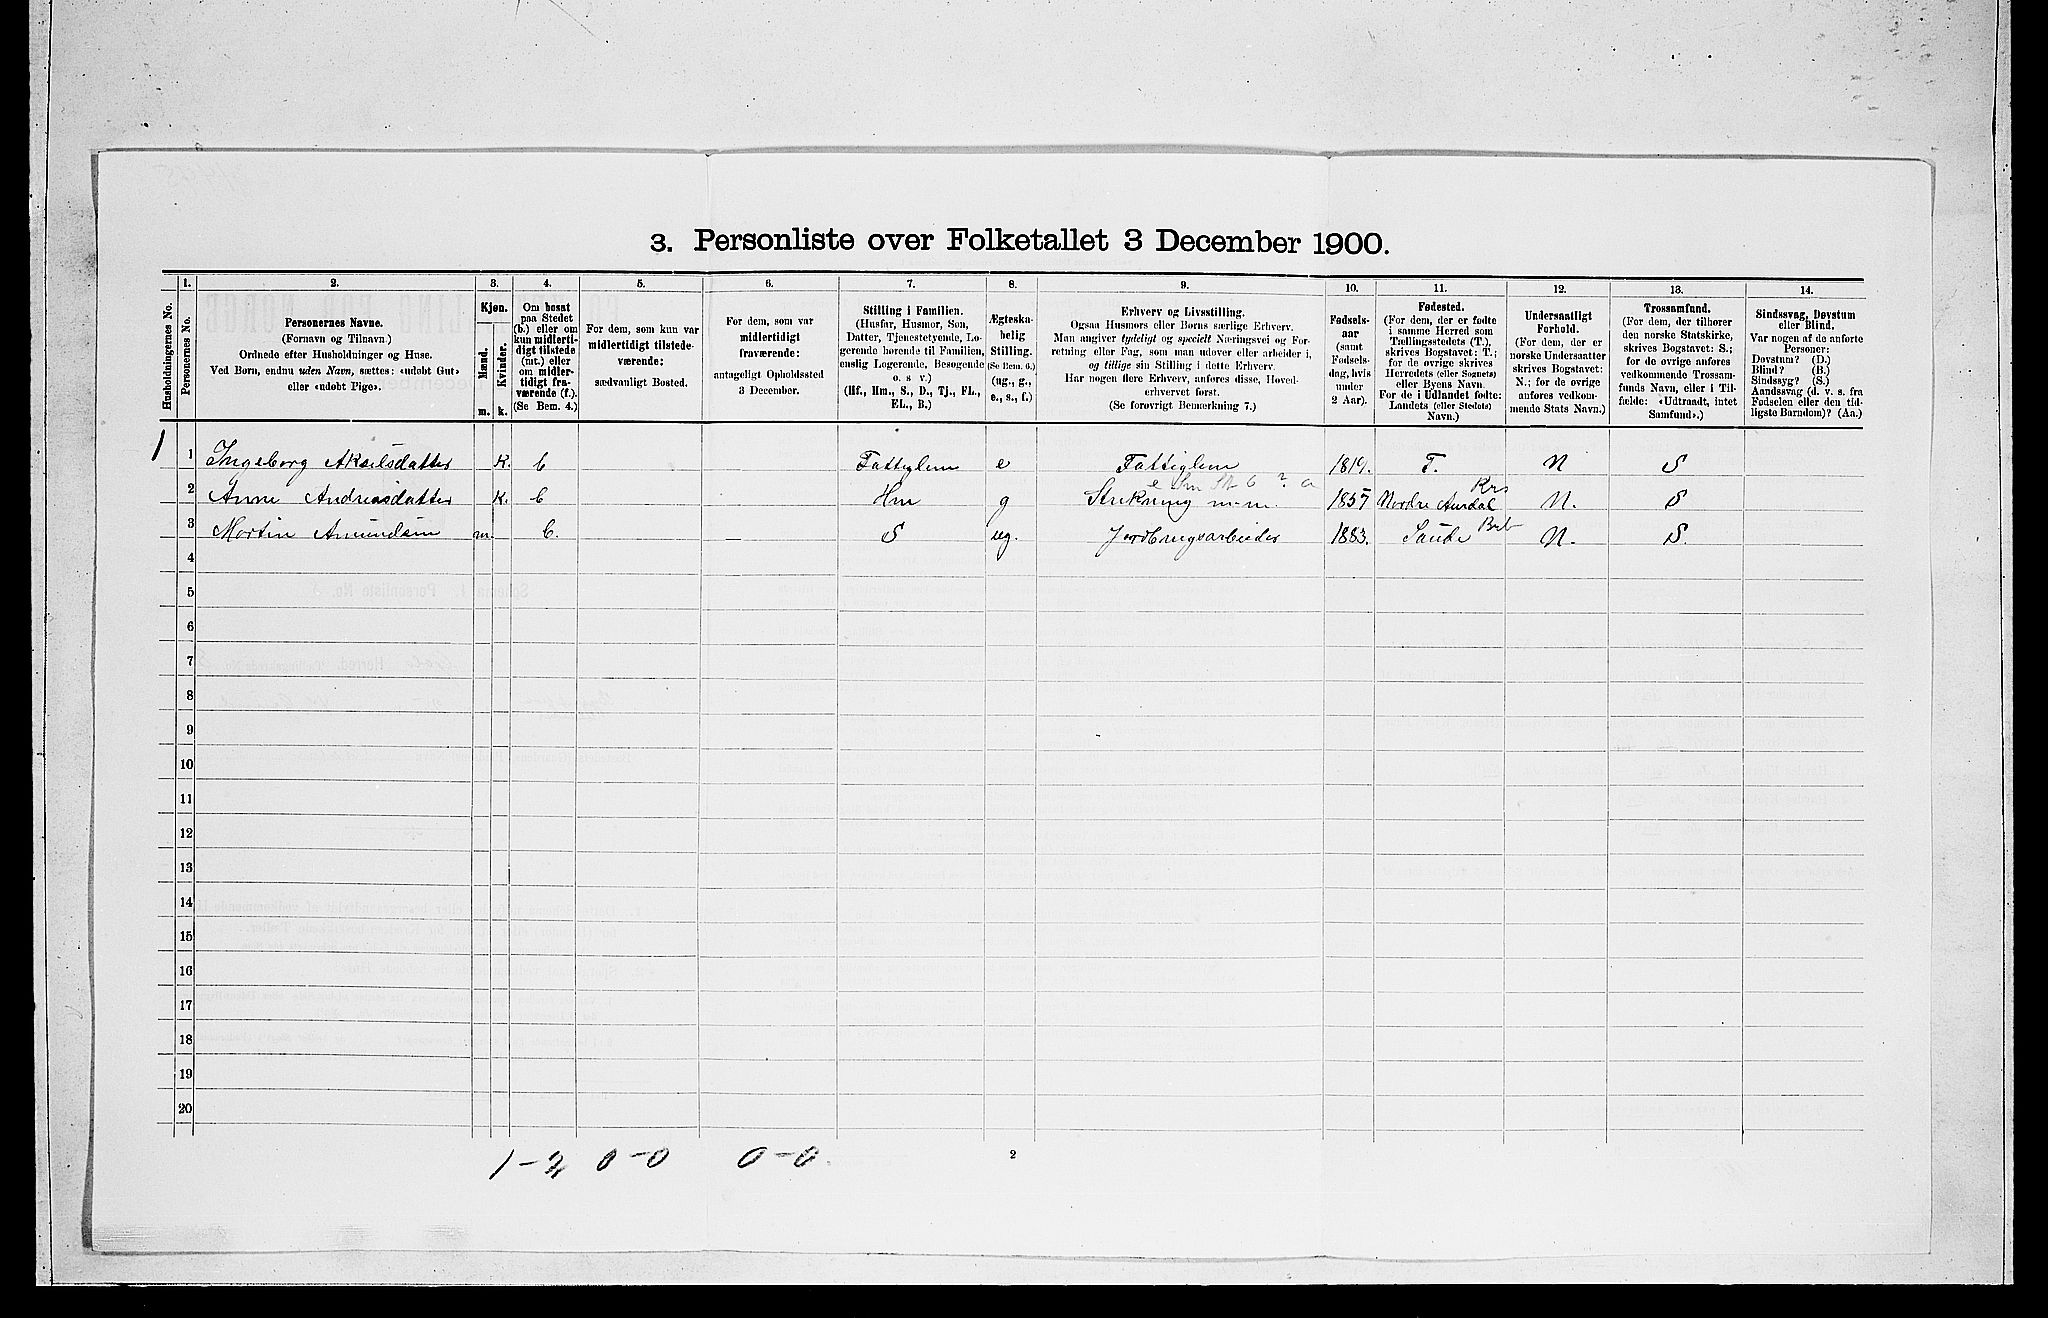 3. Personliste over Folketallet 3 December 1900.
Husholdningernes No.
1.
Personernes No.
2.
Personernes Navne.
(Fornavn og Tilnavn.)
Ordnede efter Husholdninger og Huse.
Ved Børn, endnu uden Navn, sættes: «udøbt Gut»
eller «udøbt Pige».
3.
Kjøn.
Mænd.
Kvinder.
m.
k.
4.
Om bosat
paa Stedet
(b.) eller om
kun midlerti-
digt tilstede
(mt.) eller
om midler-
tidigt fra-
værende (f.).
(Se Bem. 4.)
5.
For dem, som kun var
midlertidigt tilstede-
værende:
sædvanligt Bosted.
6.
For dem, som var
midlertidigt
fraværende:
antageligt Opholdssted
3 December.
7.
Stilling i Familien.
(Husfar, Husmor, Søn,
Datter, Tjenestetyende, Lo-
gerende hørende til Familien,
enslig Logerende, Besøgende
o. s v.)
(Hf., Hm., S., D., Tj., FL.,
EL., B.)
8.
Ægteska-
belig
Stilling.
(Se Bem. 6.)
(ug., g.,
e., s., f.)
9.
Erhverv og Livsstilling.
Ogsaa Husmors eller Børns særlige Erhverv.
Man angiver tydeligt og specielt Næringsvei og For-
retning eller Fag, som man udøver eller arbeider i,
og tillige sin Stilling i dette Erhverv.
Har nogen flere Erhverv, anføres disse, Hoved-
erhvervet først.
(Se forøvrigt Bemerkning 7.)
10.
Fødsels-
aar
(samt
Fødsels-
dag, hvis
under
2 Aar).
11.
Fødested.
(For dem, der er fødte
i samme Herred som
Tællingsstedets (T.),
skrives Bogstavet: T.;
for de øvrige skrives
Herredets (eller Sognets)
eller Byens Navn.
For de i Udlandet fødte:
Landets (eller Stedets)
Navn.)
12.
Undersaatligt
Forhold.
(For dem, der er
norske Undersaatter
skrives Bogstavet:
N.; for de øvrige
anføres vedkom-
mende Stats Navn.)
13.
Trossamfund.
(For dem, der tilhører
den norske Statskirke,
skrives Bogstavet: S.;
for de øvrige anføres
vedkommende Trossam-
funds Navn, eller i Til-
fælde: «Udtraadt, intet
Samfund».)
14.
Sindssvag, Døvstum
eller Blind.
Var nogen af de anførte
Personer:
Døvstum? (D.)
Blind? (B.)
Sindssyg? (S.)
Aandssvag (d. v. s. fra
Fødselen eller den tid-
ligste Barndom)? (Aa.)
1 1 Ingeborg Akselsdatter K. b Fattiglem e Fattiglem 1819. T. N S
2 Anne Andreasdatter K. b Hm g Strikning m.m. 1857 Nordre Aurdal Krs N. S
3 Martin Amundsen m. b. S ug. Jordbrugsarbeider 1883. Saude Brb N. S.
4
5
6
7
8
9
10
11
12
13
14
15
16
17
18
19
20
1-2 0-0 0-0.
2